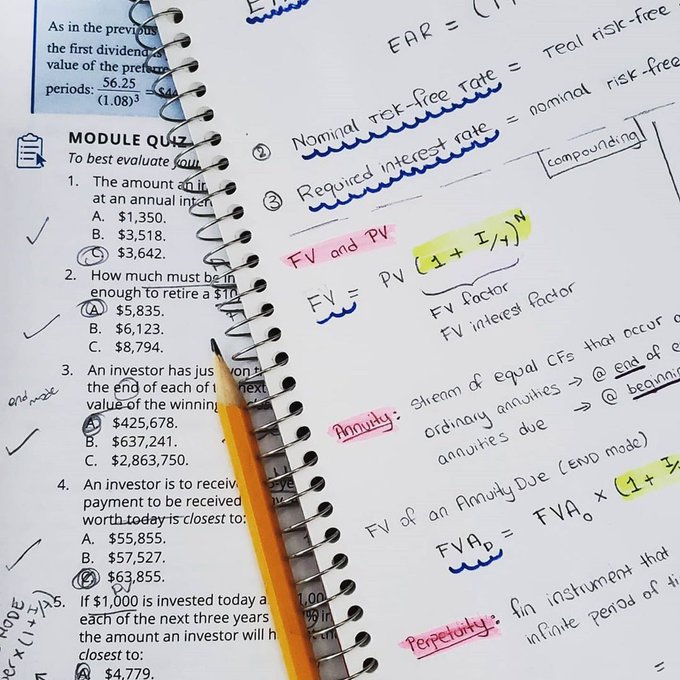 As in the previous
the first dividend is
value of the preferre
periods: 56.25
(1.08)³
MODULE QUIZ
To best evaluate your
1. The amount an in
at an annual inter
A. $1,350.
B. $3,518.
C. $3,642.
2. How much must be in
enough to retire a $10
A. $5,835.
B. $6,123.
C. $8,794.
3. An investor has just won t
the end of each of t next
value of the winning
A. $425,678.
B. $637,241.
C. $2,863,750.
end mode
4. An investor is to receiv
payment to be received
worth today is closest to:
A. $55,855.
B. $57,527.
C. $63,855.
PV
5. If $1,000 is invested today a
each of the next three years
the amount an investor will h
closest to:
A. $4,779.
MODE
x (1+I/Y)
EAR = (1
② Nominal risk-free rate = real risk-free
③ Required interest rate = nominal risk-free
compounding
FV and PV
FV = PV (1 + I/Y)ᴺ
FV factor
FV interest factor
Annuity: stream of equal CFs that occur
ordinary annuities → @ end of e
annuities due → @ beginnin
FV of an Annuity Due (END mode)
FVA_D = FVA_O × (1 + I/
Perpetuity: fin instrument that
infinite period of ti
=